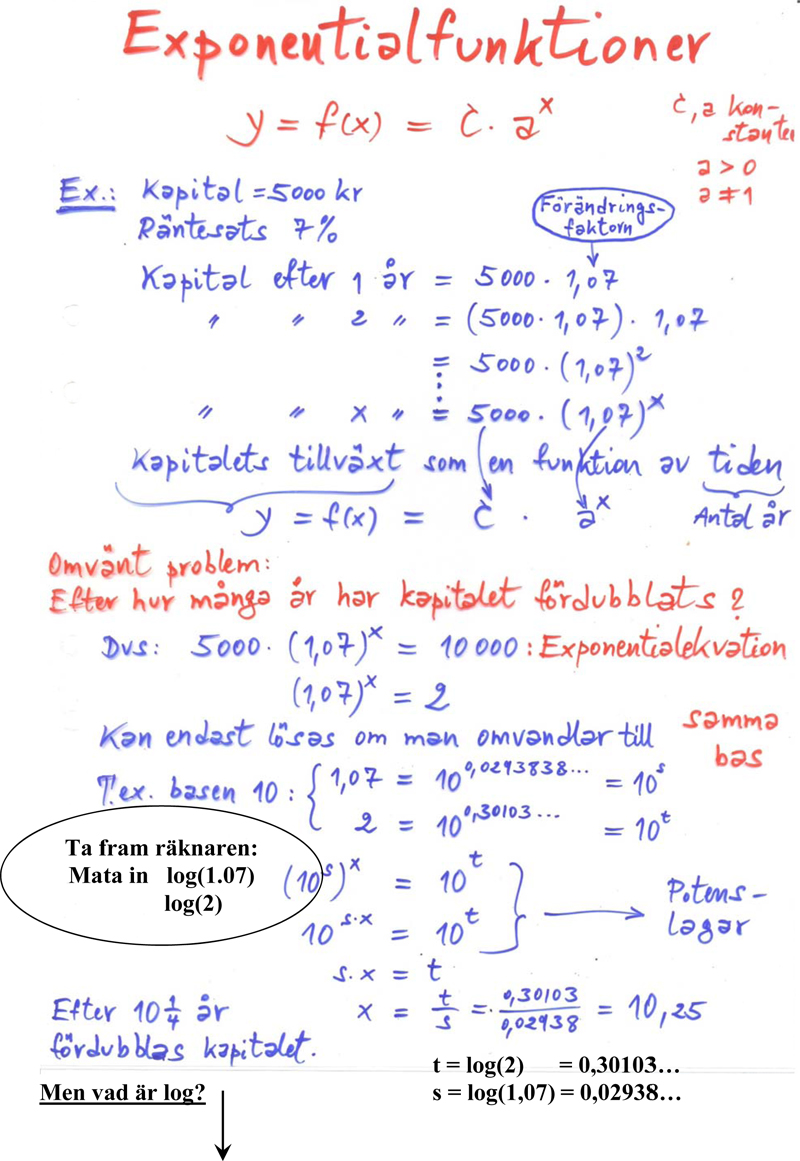 Exponentialfunktioner
y = f(x) = C · a^x
C, a kon-
stanter
a > 0
a ≠ 1
Ex.: Kapital = 5000 kr
Räntesats 7%
Förändrings-
faktorn
Kapital efter 1 år = 5000 · 1,07
" " 2 " = (5000 · 1,07) · 1,07
= 5000 · (1,07)^2
" " x " = 5000 · (1,07)^x
Kapitalets tillväxt som en funktion av tiden
y = f(x) = C · a^x Antal år
Omvänt problem:
Efter hur många år har kapitalet fördubblats ?
Dvs: 5000 · (1,07)^x = 10 000 : Exponentialekvation
(1,07)^x = 2
Kan endast lösas om man omvandlar till samma
bas
T.ex. basen 10 : { 1,07 = 10^0,0293838... = 10^s
2 = 10^0,30103... = 10^t
Ta fram räknaren:
Mata in log(1.07)
log(2)
(10^s)^x = 10^t
10^s·x = 10^t
Potens-
lagar
s·x = t
x = t/s = 0,30103/0,02938 = 10,25
Efter 10 1/4 år
fördubblas kapitalet.
t = log(2) = 0,30103…
s = log(1,07) = 0,02938…
Men vad är log?